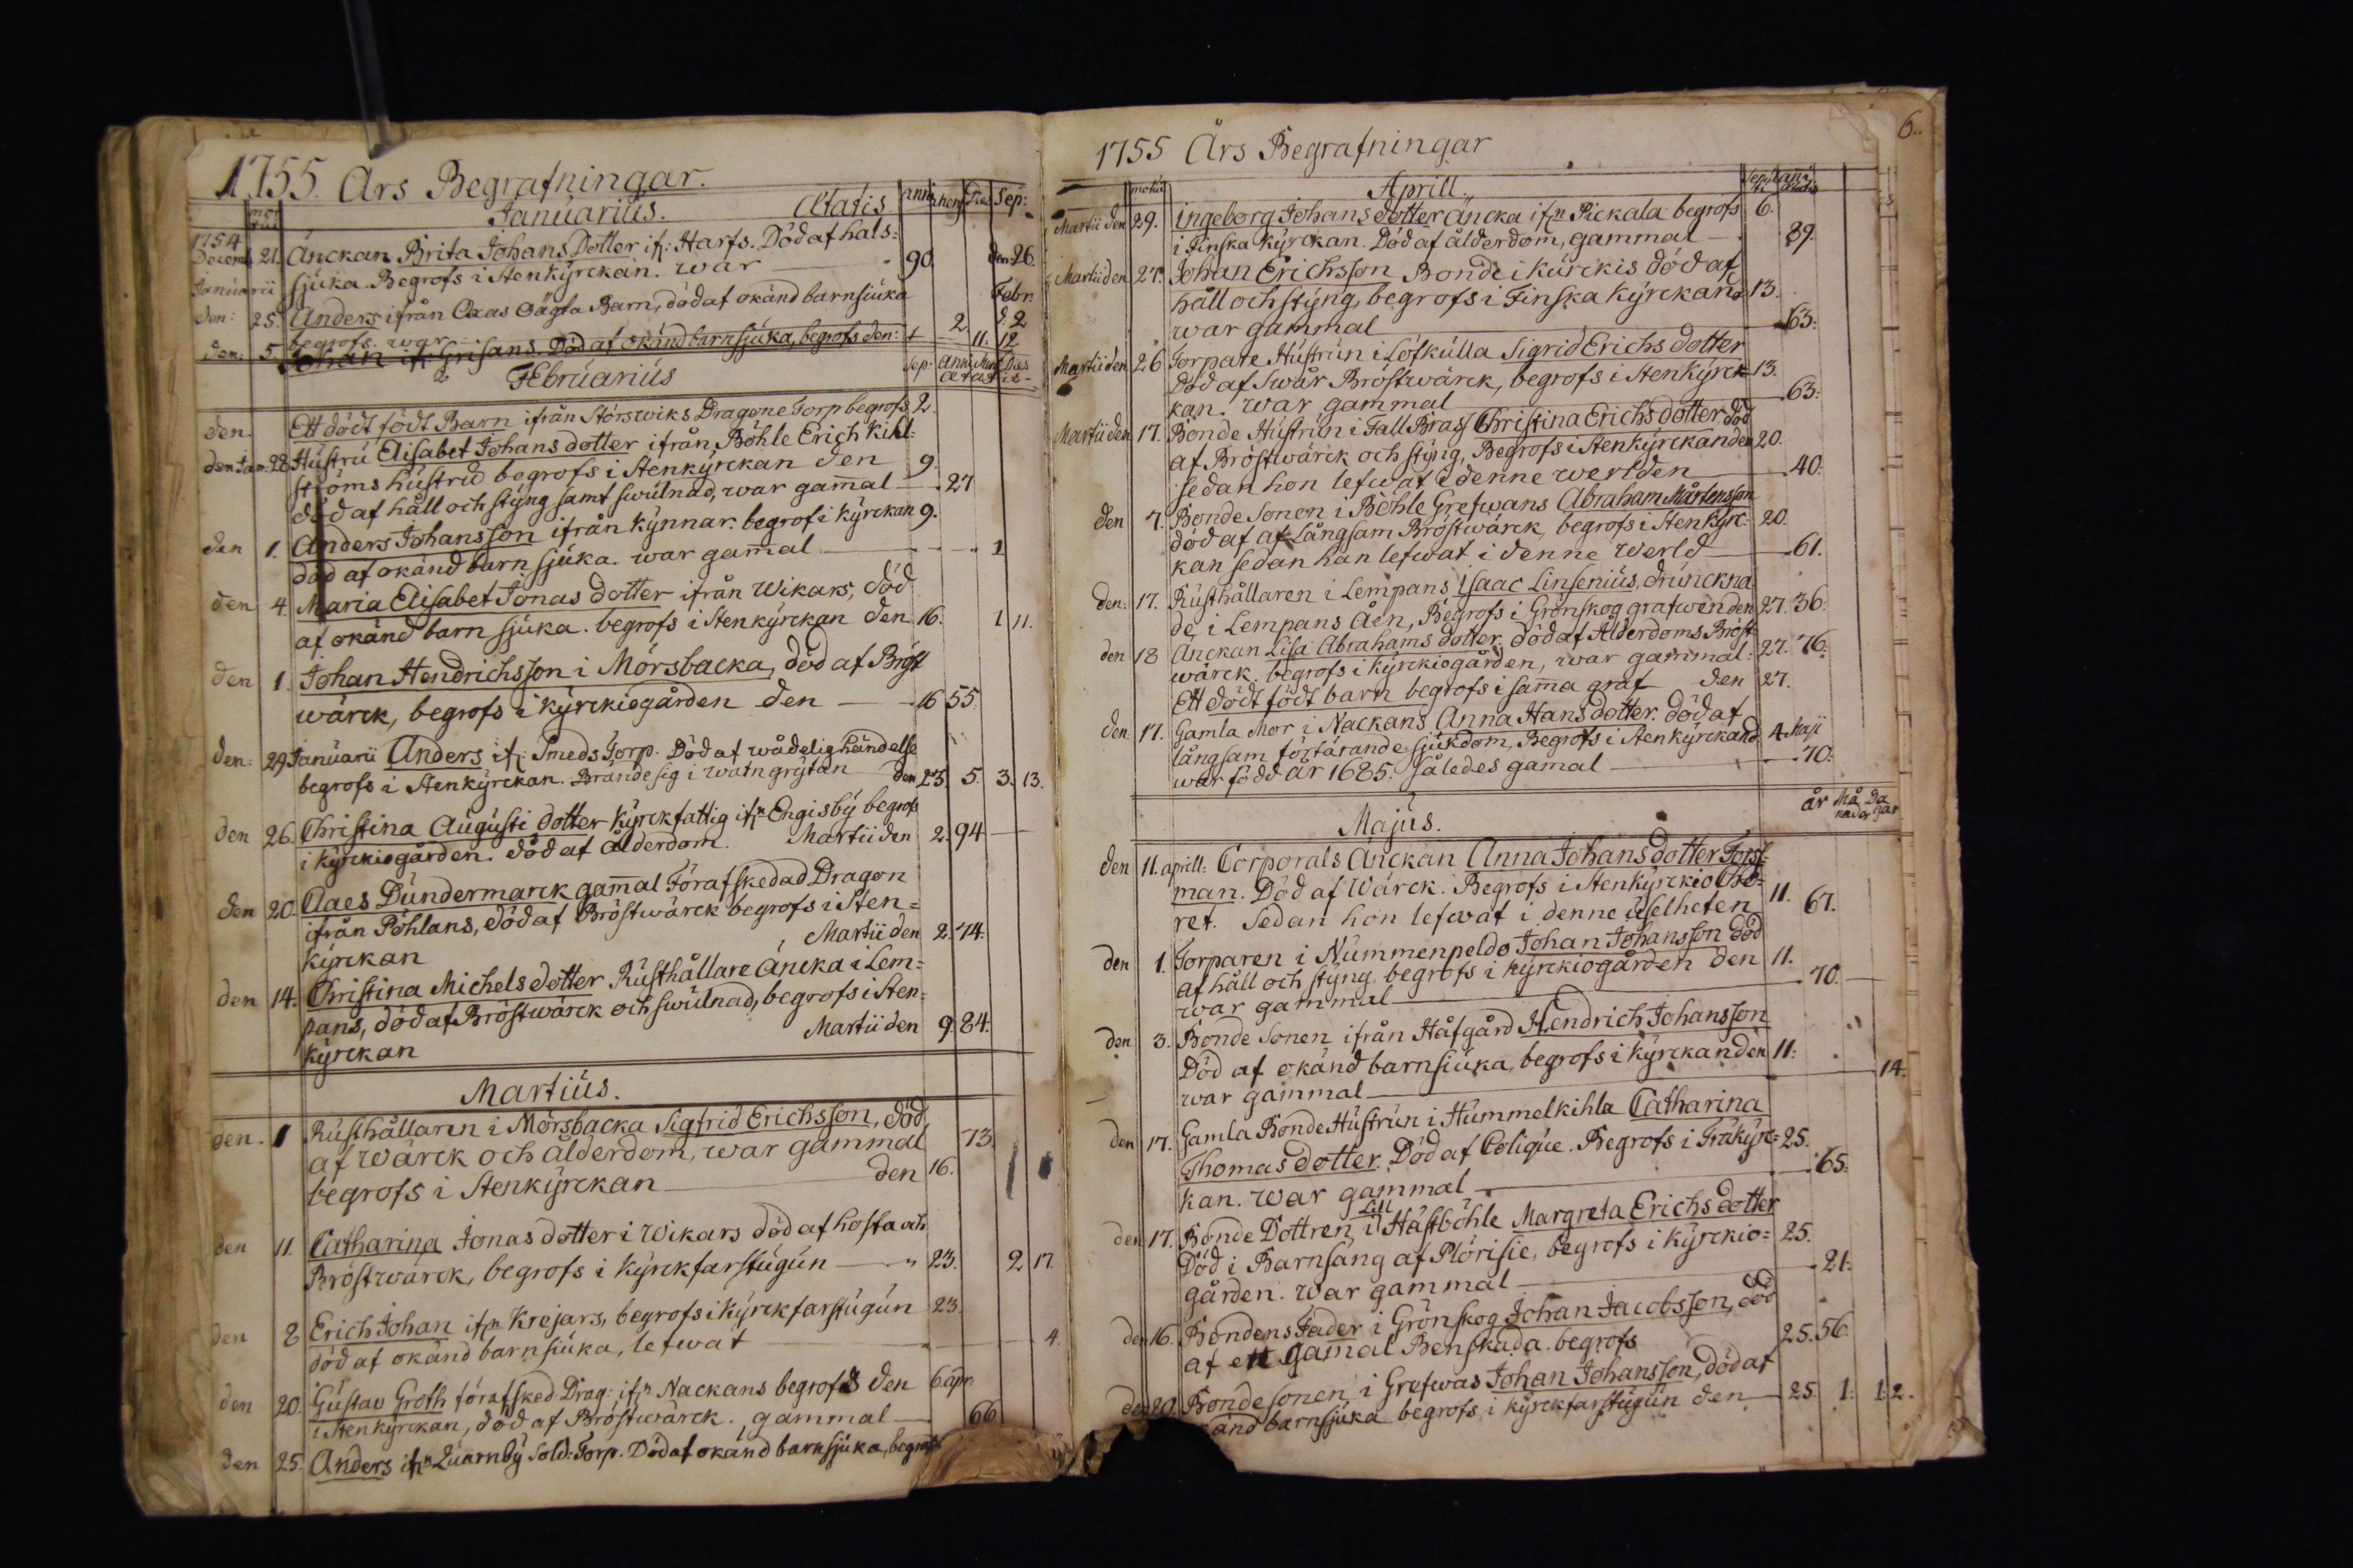 1755. Års Begrafningar.
mortui Januarius. Ætatis anni mens Dies Sep:
1754 Decemb 21. Änckan Brita Johans Dotter ifr: Harfs. Död af hals-
sjuka. Begrofs i Stenkyrckan. war — 90 den 26.
Januarii Febr.
den: 25. Anders ifrån Oxas Oägta Barn, död af okänd barnsiuka
begrofs. war — 2. d. 2
den. 5. Johan ifr: Grisans. Död af okänd barnsjuka, begrofs den: — 11. 12
Februarius Sep: Anni Mens Dies
ætatis
den. Ett dödt födt Barn ifrån Störswiks Dragone Torp begrofs 2.
den Jan: 28 Hustru Elisabet Johans dotter ifrån Böhle Erich Kihl-
ströms hustru begrofs i Stenkyrckan den 9.
död af håll och styng samt swulnad, war gam̄al — 27
den 1. Anders Johansson ifrån Kynnar. begrof i Kyrckan 9.
död af okänd barn sjuka. war gam̄al — 1
den 4. Maria Elisabet Jonas dotter ifrån Wikars, död
af okänd barn sjuka. begrofs i Stenkyrckan den 16. 1 11.
den 1. Johan Hendrichsson i Mörsbacka, död af Bröst
wärck, begrofs i Kyrckiogården den — 16 55.
den: 29 Januarii Anders ifr: Smeds Torp. Död af wådelig händelse
begrofs i Stenkyrckan. Brände sig i watn grytan den 23. 5. 3. 13.
den 26. Christina Augusti dotter Kyrckfattig ifrn Engisby begrofs
i Kyrckiogården. död af ålderdom. Martii den 2. 94
den 20. Claes Dundermarck gam̄al Förafskedad Dragon
ifrån Pöhlans, död af Bröstwärck begrofs i Sten-
kyrckan Martii den 2. 74.
den 14. Christina Michels dotter Rusthållare Äncka i Lem-
pans, död af Bröstwärck och swulnad, begrofs i Sten-
kyrckan Martii den 9. 84.
Martius.
den. 1 Rusthållaren i Mörsbacka Sigfrid Erichsson, död
af Wärck och ålderdom, war gammal 73.
begrofs i Stenkyrckan — den 16.
den 11. Catharina Jonas dotter i Wikars död af hosta och
Bröstwärck, begrofs i Kyrckfarstugun — 23. 2 17
den 8 Erich Johan ifrn Krejars, begrofs i Kyrckfarstugun 23.
död af okänd barnsiuka, lefwat — 4.
den 20. Gustav Groth förafsked. Drag: ifrn Nackans begrofs den 6 apr.
i Stenkyrckan, död af Bröstwärck. gammal — 66
den 25. Anders ifrn Quarnby Sold: Torp. Död af okänd barnsjuka, begrofs
6.
1755 Års Begrafningar
mortui Aprill.
Martii den 29. Ingeborg Johans dotter Äncka ifrn Pickala begrofs 6.
i Finska Kyrckan. Död af ålderdom, gammal — 89.
Martii den 27. Johan Erichsson Bonde i Kurckis död af
håll och styng, begrofs i Finska Kyrckan d 13.
war gammal — 63:
Martii den 26 Torpare Hustrun i Lofkulla Sigrid Erichs dotter
Död af Swår Bröstwärck, begrofs i Stenkyrck- 13.
kan. war gammal — 63:
Martii den 17. Bonde Hustrun i Fall Brass Christina Erichs dotter död
af Bröstwärck och styng, Begrofs i Stenkyrckan den 20.
sedan hon lefwat i denne werlden — 40.
den 7. Bonde Sonen i Böhle Grefwans Abraham Mårtensson
död af af Långsam Bröstwärck, begrofs i Stenkyrc- 20.
kan sedan han lefwat i denne werld — 61.
den: 17. Rusthållaren i Lempans Isaac Linsenius, druncknade
de i Lempans Åen, Begrofs i Grönskog grafwen den 27. 36:
den 18 Anckan Lisa Abrahams dotter. död af Ålderdoms Bröst-
wärck. begrofs i Kyrckiogården, war gammal: 27. 76:
Ett dödt födt barn begrofs i sam̄a graf den 27.
den. 17. Gamla Mor i Nackans Anna Hans dotter. död af
långsam förtärande sjukdom, Begrofs i Stenkyrckan d 4 Maji
war född år 1685. således gamal — 70:
Majus. år Månader Dagar
den 11. aprill: Corporals Änckan Anna Johans dotter Forss-
man. Död af Wärck. Begrofs i Stenkyrckio Cho-
ret. Sedan hon lefwat i denne uselheten 11. 67.
den 1. Torparen i Nummenpeldo Johan Johansson död
af håll och styng. begrofs i Kyrckiogården den 11.
war gammal — 70.
den 3. Bonde Sonen ifrån Håfgård Hendrich Johansson
Död af okänd barnsiuka, begrofs i Kyrckan den 11:
war gammal — 14.
den 17. Gamla Bonde Hustrun i Hummelkihla Catharina
Thomas dotter. Död af Colique. Begrofs i Träkyrc- 25.
kan. war gammal — 65.
den 17. Bonde Dottren i Lill Hästböhle Margreta Erichs dotter
Död i Barnsäng af Plörisie, begrofs i Kyrckio- 25.
gården. war gammal — 21.
den 16. Bondens Fader i Grönskog Johan Jacobsson, död
af ett gam̄al Benskada. begrofs 25. 56.
den 20. Bonde sonen i Grefwas Johan Johansson, död af
känd barnsjuka begrofs i Kyrckfarstugun den — 25. 1: 1: 2.